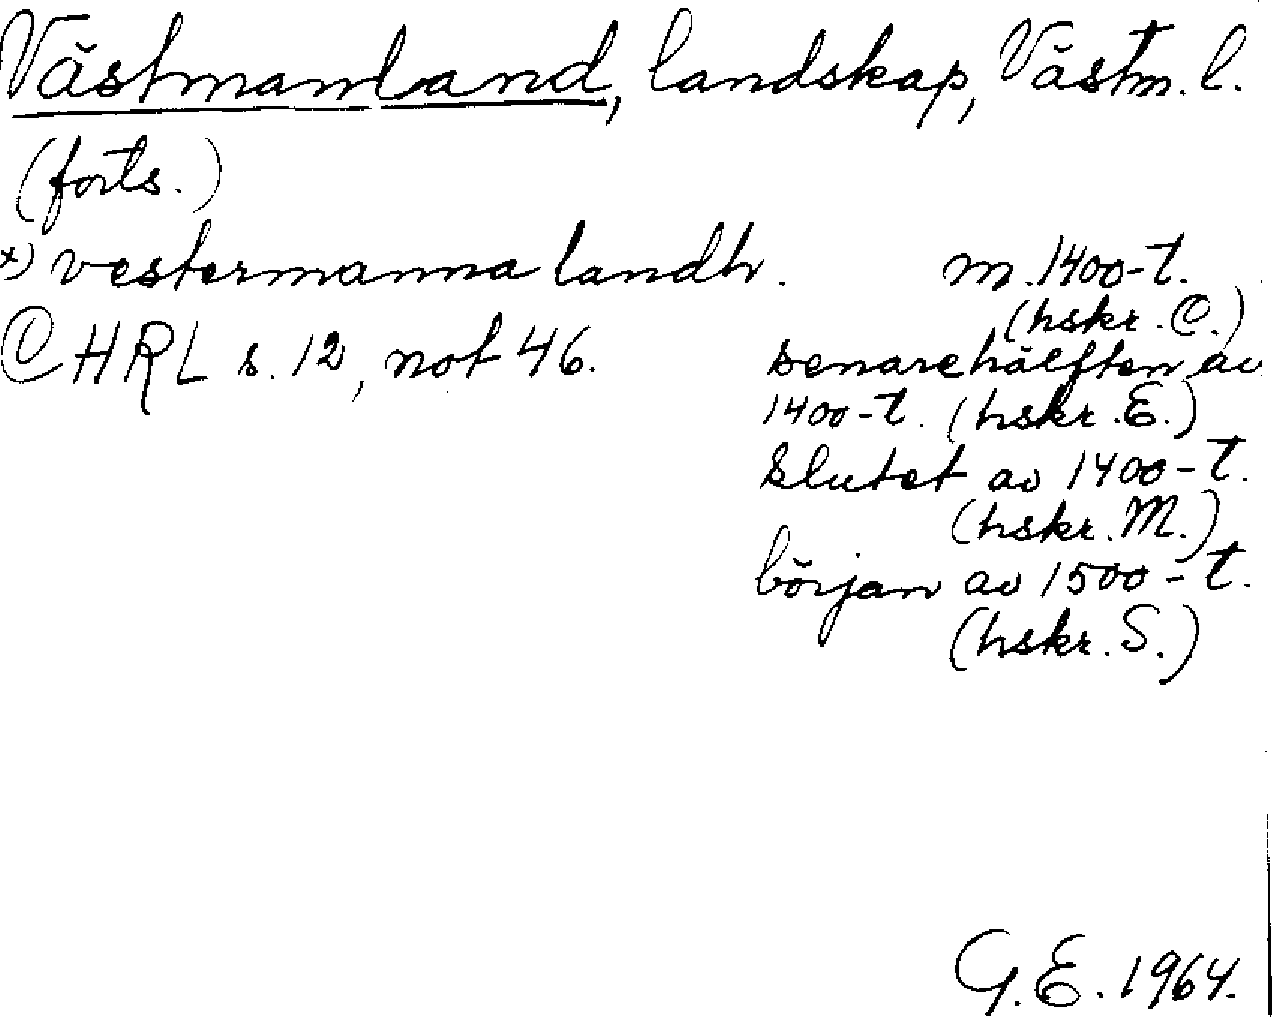 Västmanland, landskap, Västm. l.
(forts.)
x) vestermanna landh. m. 1400-t.
(hskr. C.)
CHRL s. 12, not 46. senare hälften av
1400-t. (hskr. E.)
slutet av 1400-t.
(hskr. M.)
början av 1500-t.
(hskr. S.)
G.E. 1964.